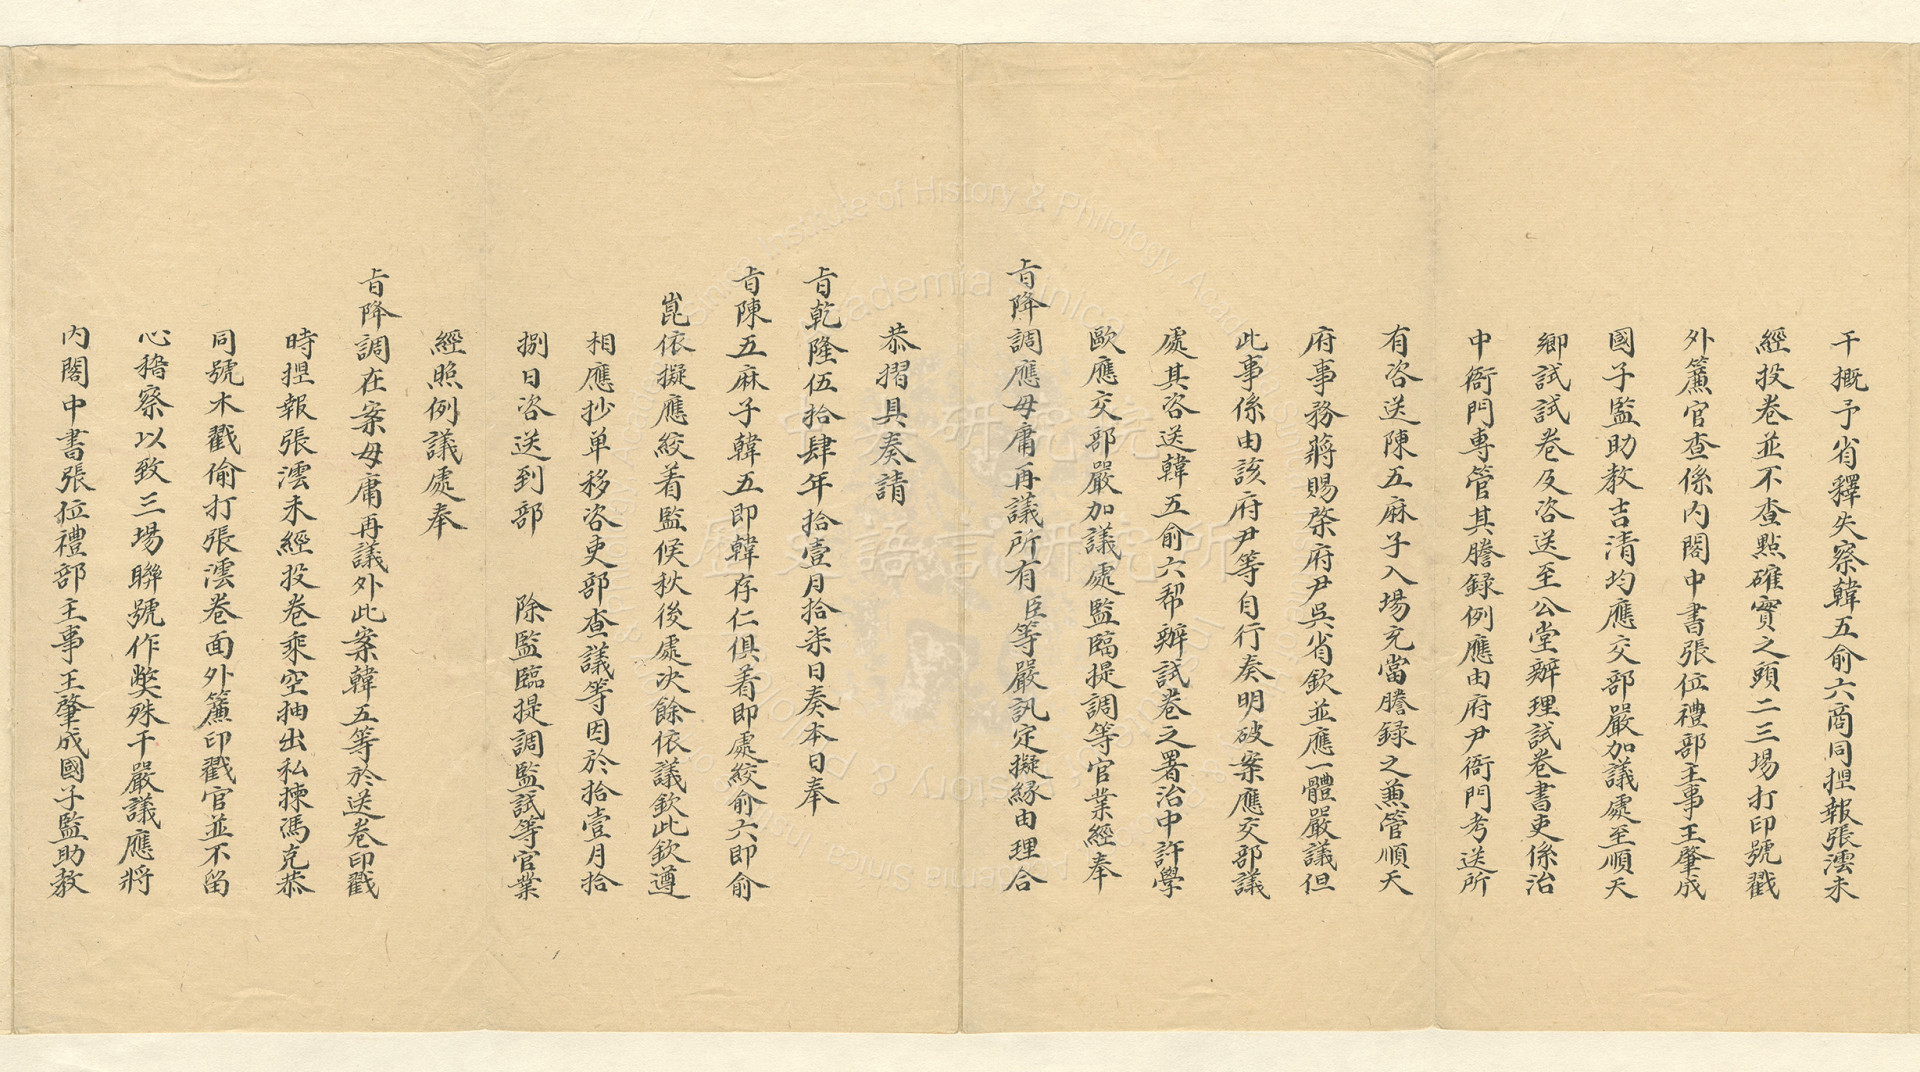 干概予省釋失察韓五俞六商同揑報張澐未
經投卷並不查點確實之頭二三塲打印號戳
外簾官查係內閣中書張位禮部主事王肇成
國子監助教吉清均應交部嚴加議處至順天
鄉試試卷及咨送至公堂辦理試卷書吏係治
中衙門專管其謄録例應由府尹衙門考送所
有咨送陳五麻子入塲充當謄録之兼管順天
府事務蔣賜棨府尹吳省欽並應一體嚴議但
此事係由該府尹等自行奏明破案應交部議
處其咨送韓五俞六帮辦試卷之署治中許學
歐應交部嚴加議處監臨提調等官業經奉
旨降調應毋庸再議所有臣等嚴訊定擬緣由理合
恭摺具奏請
旨乾隆伍拾肆年拾壹月拾柒日奏本日奉
旨陳五麻子韓五即韓存仁俱着即處絞俞六即俞
崑依擬應絞着監候秋後處决餘依議欽此欽遵
相應抄单移咨吏部查議等因於拾壹月拾
捌日咨送到部　　除監臨提調監試等官業
經照例議處奉
旨降調在案毋庸再議外此案韓五等於送卷印戳
時揑報張澐未經投卷乘空抽出私揀馮克恭
同號木戳偷打張澐卷面外簾印戳官並不留
心稽察以致三塲聯號作獘殊干嚴議應將
內閣中書張位禮部主事王肇成國子監助教
中央研究院
歷史語言研究所
Institute of History & Philology, Academia Sinica